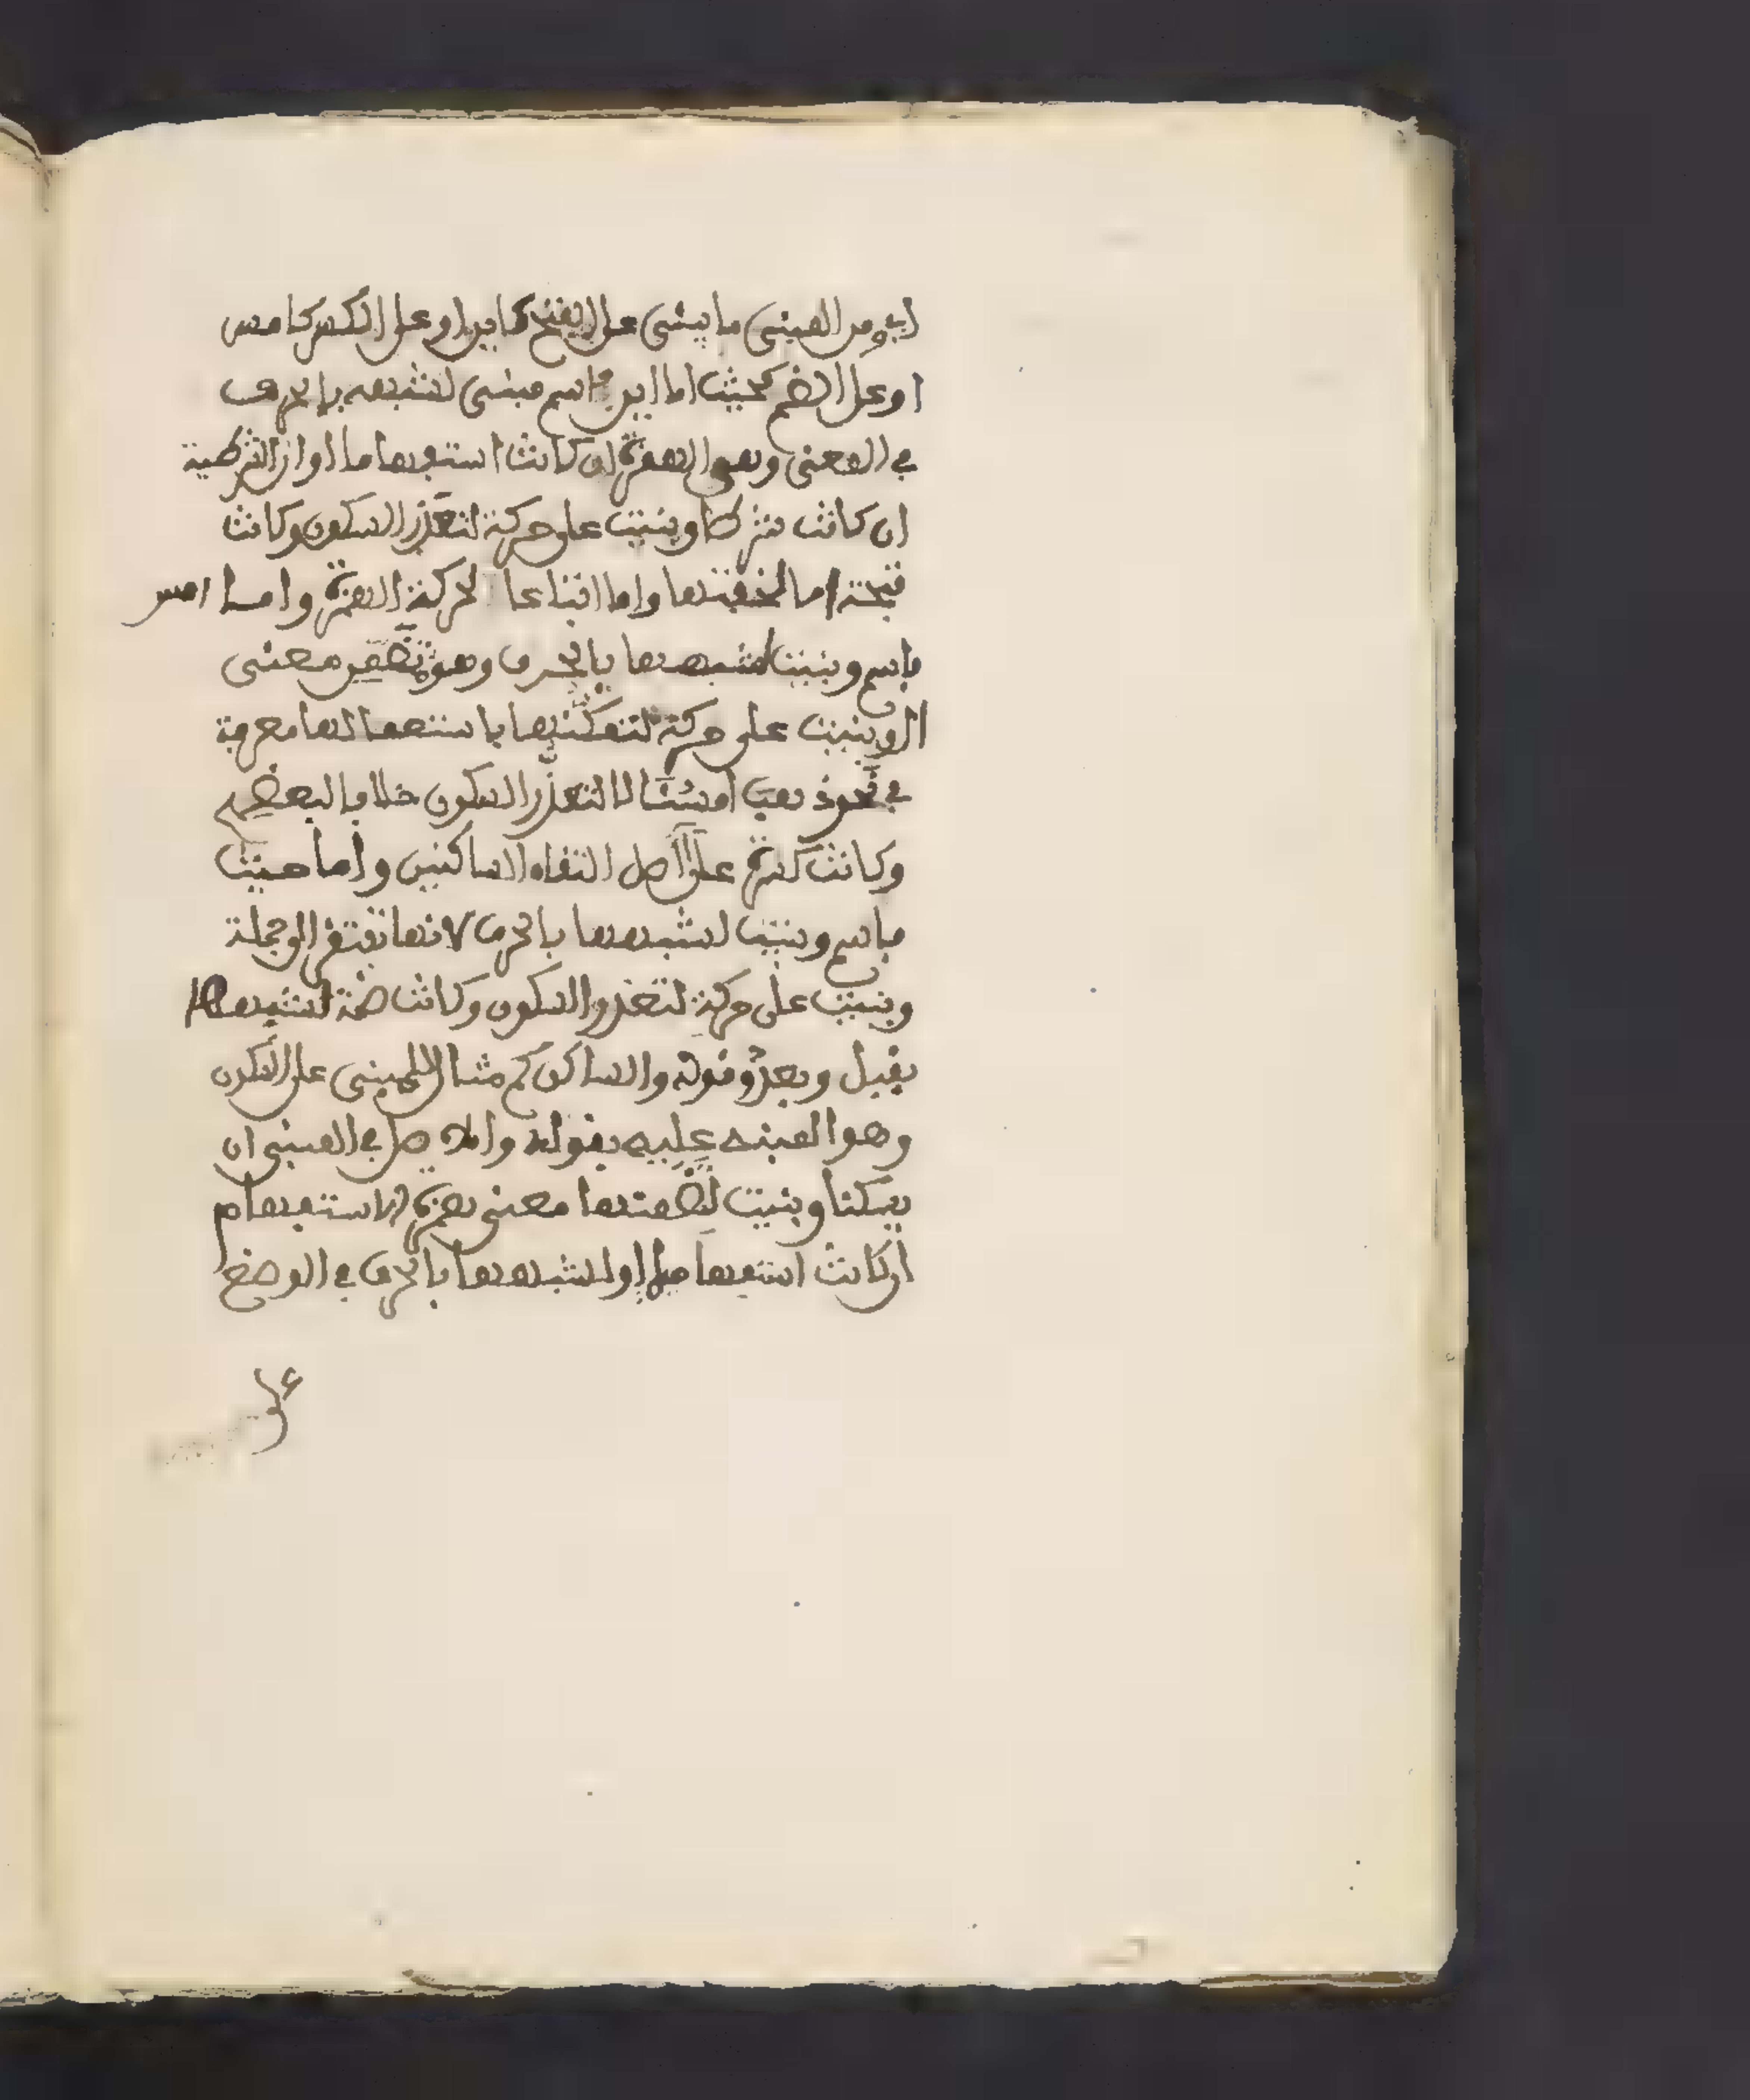 اي ومن المبني ما يبنى على الفتح كاين او على الكسر كامس
او على الضم كحيث اما اين فاسم مبني لشبهه بالحرف
في المعنى وهو الهمزة ان كانت استفهاما او ان الشرطية
ان كانت شرطا وبنيت على حركة لتعذر السكون وكانت
فتحة اما لخفتها واما اتباعا لحركة الهمزة واما امس
فاسم وبنيت لشبهها بالحرف وهو تضمين معنى
ال وبنيت على حركة لتمكنها باستعمالها معرفة
في نحو ذهب امس لا لتعذر السكون خلافا لبعضهم
وكانت كسرة على اصل التقاء الساكنين واما حيث
فاسم وبنيت لشبهها بالحرف لانها تفتقر الى جملة
وبنيت على حركة لتعذر السكون وكانت ضمة لشبهها
بقبل وبعد وقوله والساكن كم مثال للمبني على السكون
وهو المنبه عليه بقوله والاصل في المبني ان
يسكنا وبنيت لتضمنها معنى همزة الاستفهام
ان كانت استفهاما او لشبهها بالحرف في الوضع